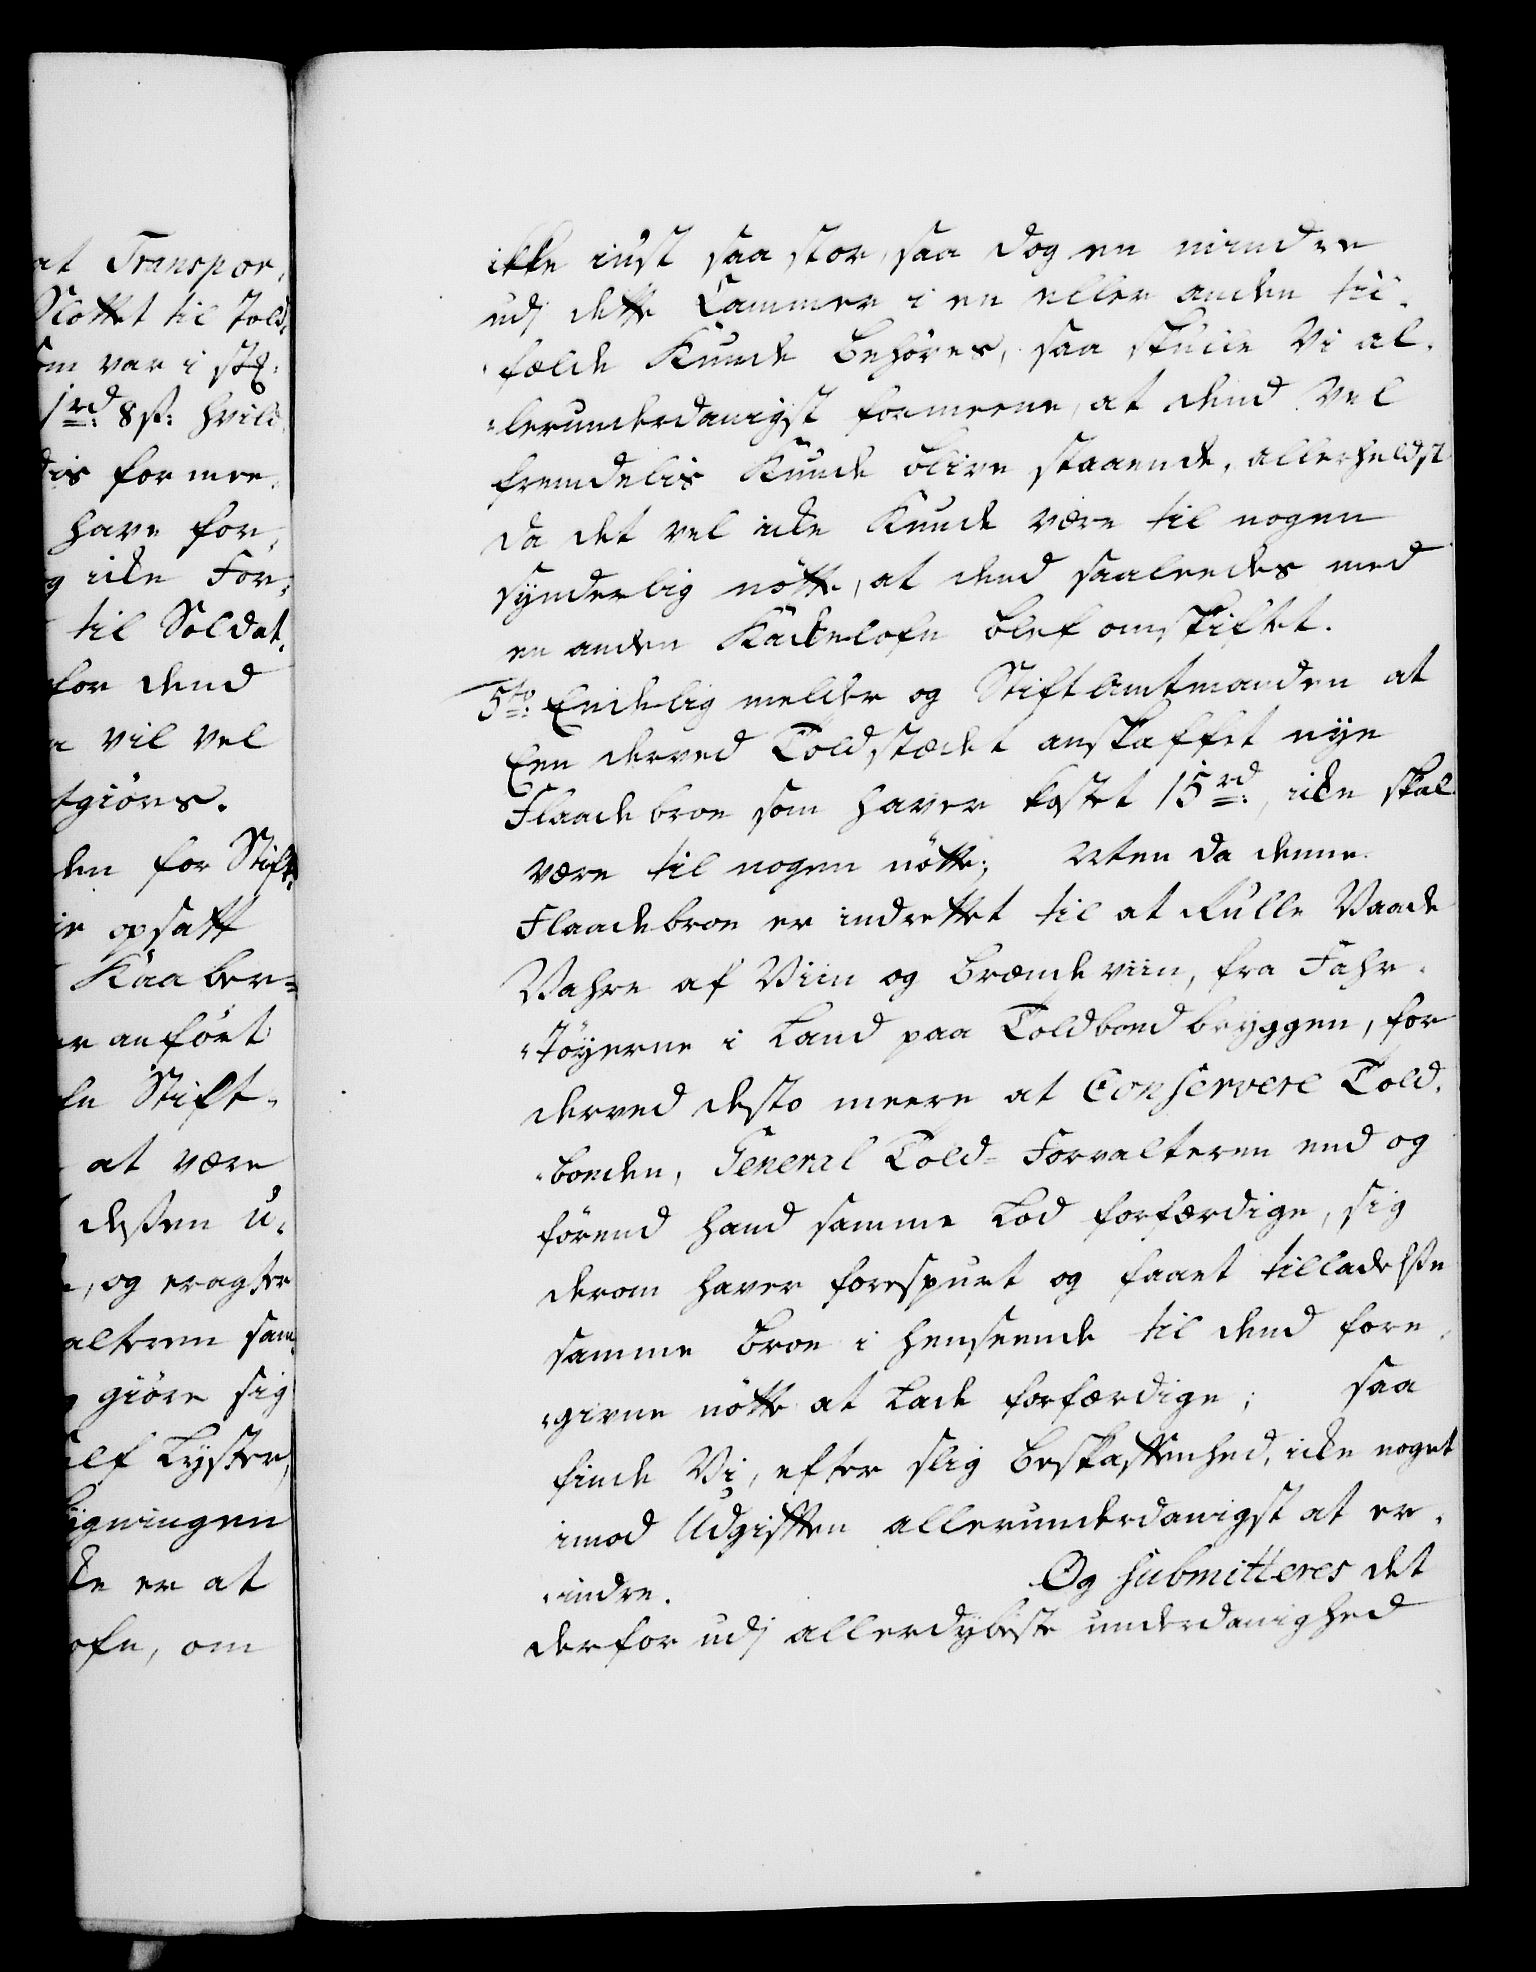 at Transpor,
Slottet til Told,
om var i stæ,
1rd: 8 sk: hvile
dis for mee,
have for,
g icke For,
til Soldat,
for dend
vil vel
tgiöres.
den for Stift,
ie opsatt
Kaaber=
er anfört
Stift,
at være
dessen u,
, og eragter
alteren sam,
giöre sig
elf Lyster,
igningen
cke er at
ofn, om
ikke iust saa stor, saa dog en mindre
udj dette Cammer i en eller anden til,
,fælde Kunde behöres, saa skulle Vi al,
,lerunderdanigst formeene, at dend vel
fremdelis Kunde blive staaende, allerheldst
da det vel icke Kunde være til nogen
synderlig nötte, at dend saaleedes med
en anden Kackelofn blef omskiftet.
5to: Endelig melder og StiftAmtmanden at
Een derved Toldstædet anskaffet nye
Flaadebroe som haver kostet 15rd:, icke skal
være til nogen nötte; Uten da denne
Flaadebroe er indrettet til at Rulle Vaade
Vahre af Viin og brændeviin, fra Fahr,
,töyerne i Land paa Toldboedbryggen, for
derved desto meere at Conservere Told,
,boeden, General Told= Forvalteren end og
förend hand samme lod forfærdige, sig
derom haver forespurt og faaet tilladelsse
samme Broe i henseende til dend fore,
,givne nötte at lade forfærdige; saa
finde Vi, efter slig beskaffenhed, icke noget
imod Udgiften allerunderdanigst at er,
,indre. Og submitteres det
derfor udj allerdybeste underdanighed